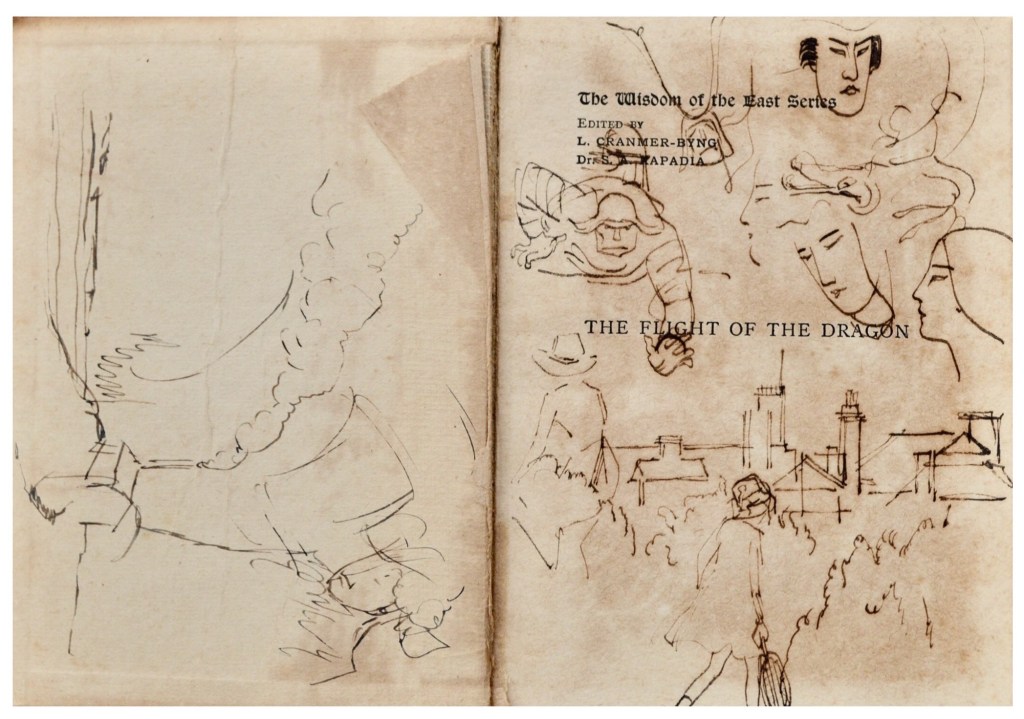 The Wisdom of the East Series
EDITED BY
L. CRANMER-BYNG
Dr. S. A. KAPADIA
THE FLIGHT OF THE DRAGON